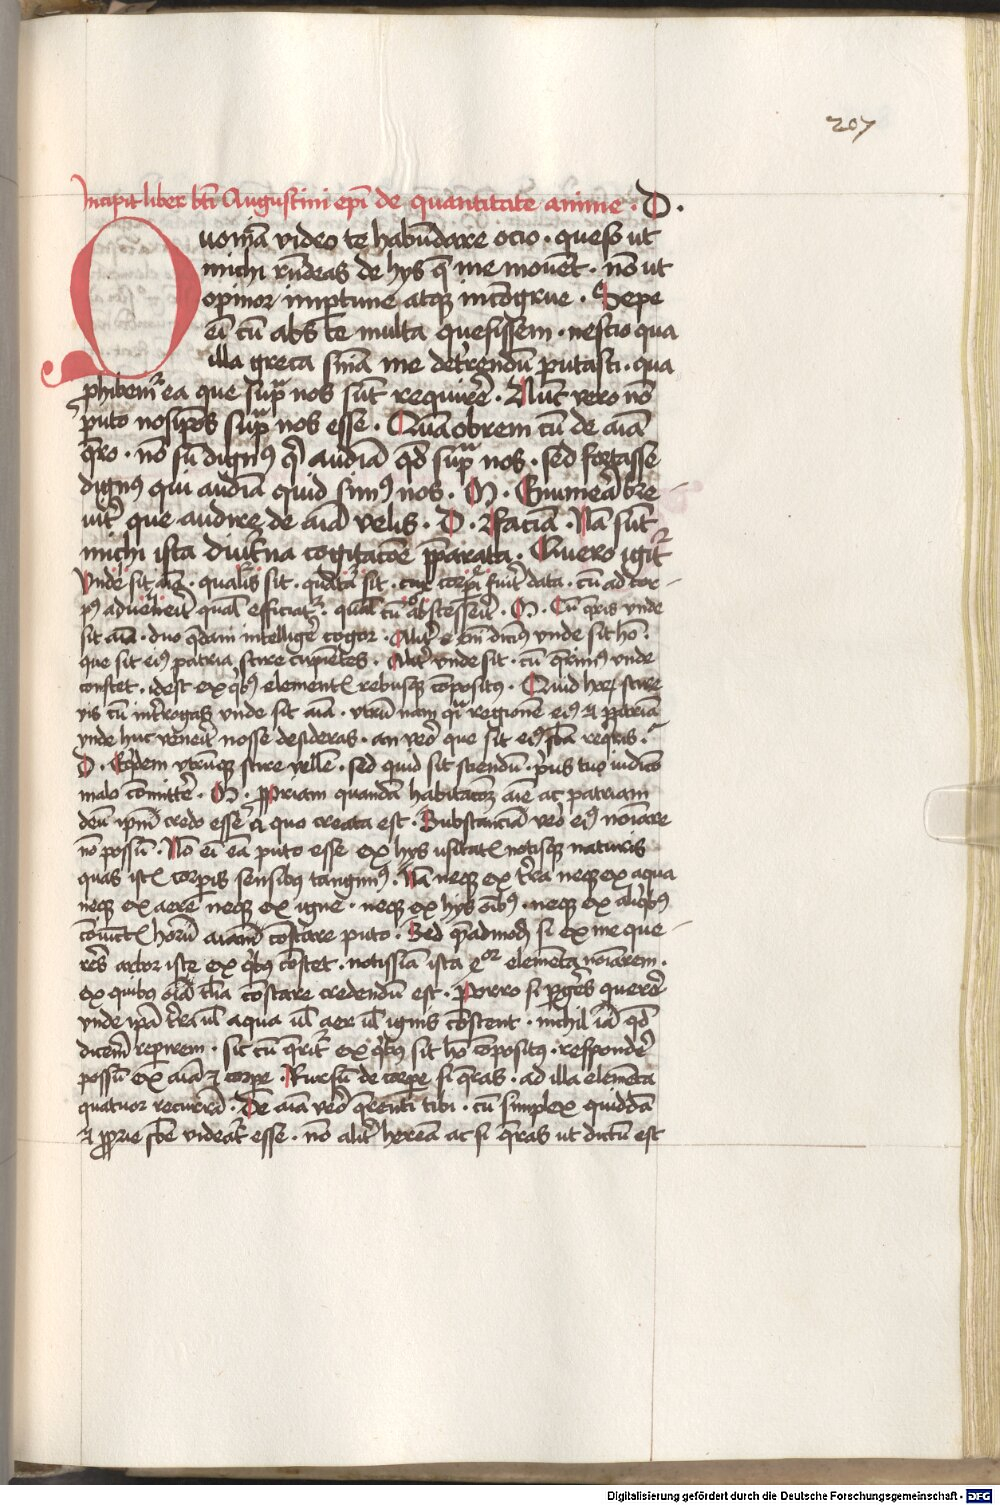 207
Incipit liber bti Augustini epi de quantitate anime . D .
Quoniā video te habūdare ocio . queso ut
michi rn̄deas de hys q̄ me mouēt . nō ut
opinor importune atq; incōgrue . Sepe
eī cū abs te multa quesissem . nescio qua
illa greca sn̄ia me det'rendū putasti . qua
phibem' ea que supͣ nos sūt requirē . Nūc vero nō
puto nosipōs supͣ nos esse . Quāobrem cū de aīa
q̄ro . nō sū dign' q' audiā qd' supͣ nos . sed fortasse
dign' qui audiā quid sim' nos . M . Enumea bre-
uit' que audire de aīa velis . D . Faciā . Nā sūt
michi ista diut'na cogitacōe p̄parata . Quero igit'
Vnde sit aīa . qualis sit . quāta sit . cur corpi fuit data . cū ad cor-
p' aduen'it qual' efficiat' . qual' cū abscess'it . M . Cū q̄ris vnde
sit aīa . duo q̄dam intellig'e cogor . Alit' e eīm dicim' vnde sit hō .
que sit ei' patria scire cupiētes . Alit' vnde sit . cū q̄rim' vnde
constet . idest ex qb' elementis rebusq; cōposit' . Quid hor' scire
vis cū int'rogas vnde sit aīa . vtrū nam q̄i regionē ei' et patriā
vnde huc ven'it nosse desideras . an vero que sit ei' sba requiris .
D . Eq'dem vtrūq; scire vellē . sed quid sit sciendū prius tuo iudico
malo cōmitt'e . M . Propriam quandā habitacōem aīe ac patriam
deū ipm̄ credo esse a quo creata est . Substanciā vero ei' noīare
nō possū . Nō eī eā puto esse ex hys usitatis notisq; naturis
quas istis corpis sensibus tangim' . Nā neq; ex t'ra neq; ex aqua
neq; ex aere neq; ex igne . neq; ex hys oīb' . neq; ex aliqb'
cōiūctis horū aīam constare puto . Sed quēadmod' si ex me que-
reres arbor iste ex qb' cōstet . notissīa ista qͣtuor elemēta noīarem .
ex quibus oīa talia constare credendū est . Porro si p'geres quer'e
vnde ipā t'ra ul' aqua ul' aer ul' ignis constent . nichil iā qd'
dicerē reperirem . sic cū q̄rit' ex qb' sit hō cōposit' . respond'e
possū ex aīa et corpe . Rursū de corpe si q̄ras . ad illa elemēta
quatuor recurrā . De aīa vero q̄renti tibi . cū simplex quiddā
et proprie sbe videat' esse . nō alit' heream ac si q̄ras ut dictū est
Digitalisierung gefördert durch die Deutsche Forschungsgemeinschaft - DFG